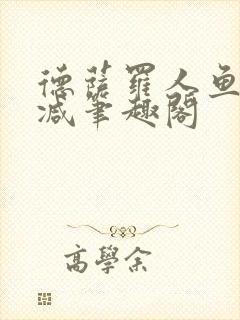 德薩羅人魚
減筆趣閣
高學余